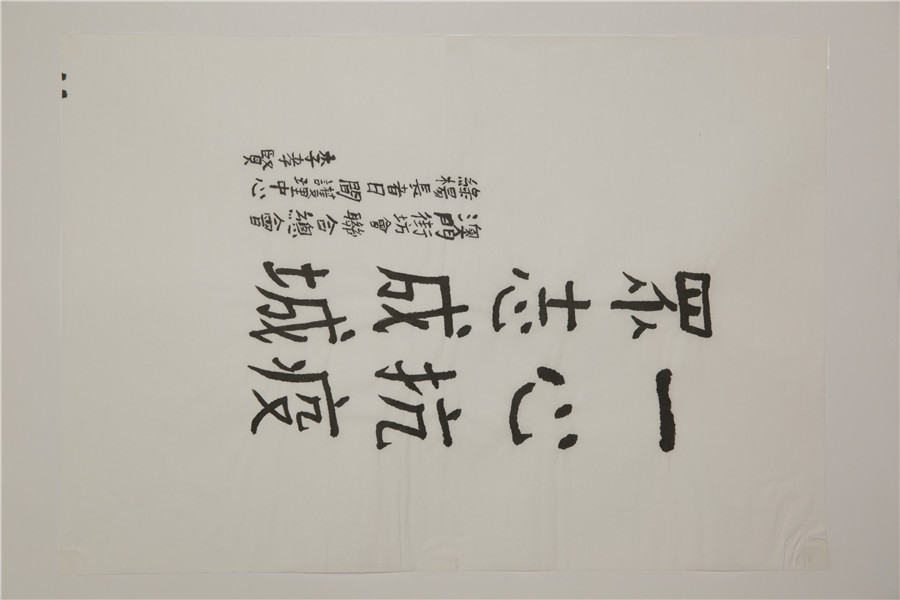 一心抗疫
眾志成城
澳門街坊會聯合總會
綠楊長者日間護理中心
李賢